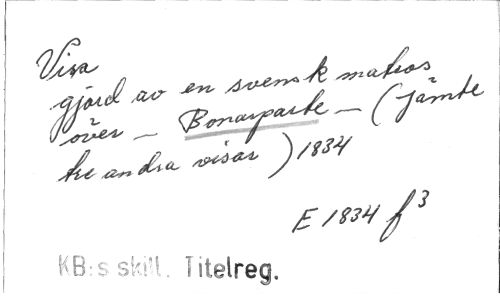 Visa
gjord av en svensk matros
över – Bonarparte – (Jämte
tre andra visor) 1834
E 1834 f 3
KB:s skill. Titelreg.